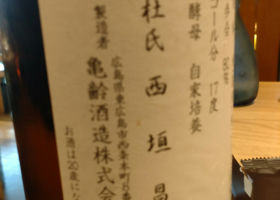 アルコール分 17度
酵母 自家培養
杜氏 西垣昌
製造者
広島県東広島市西条本町8番
亀齢酒造株式会
お酒は20歳にな